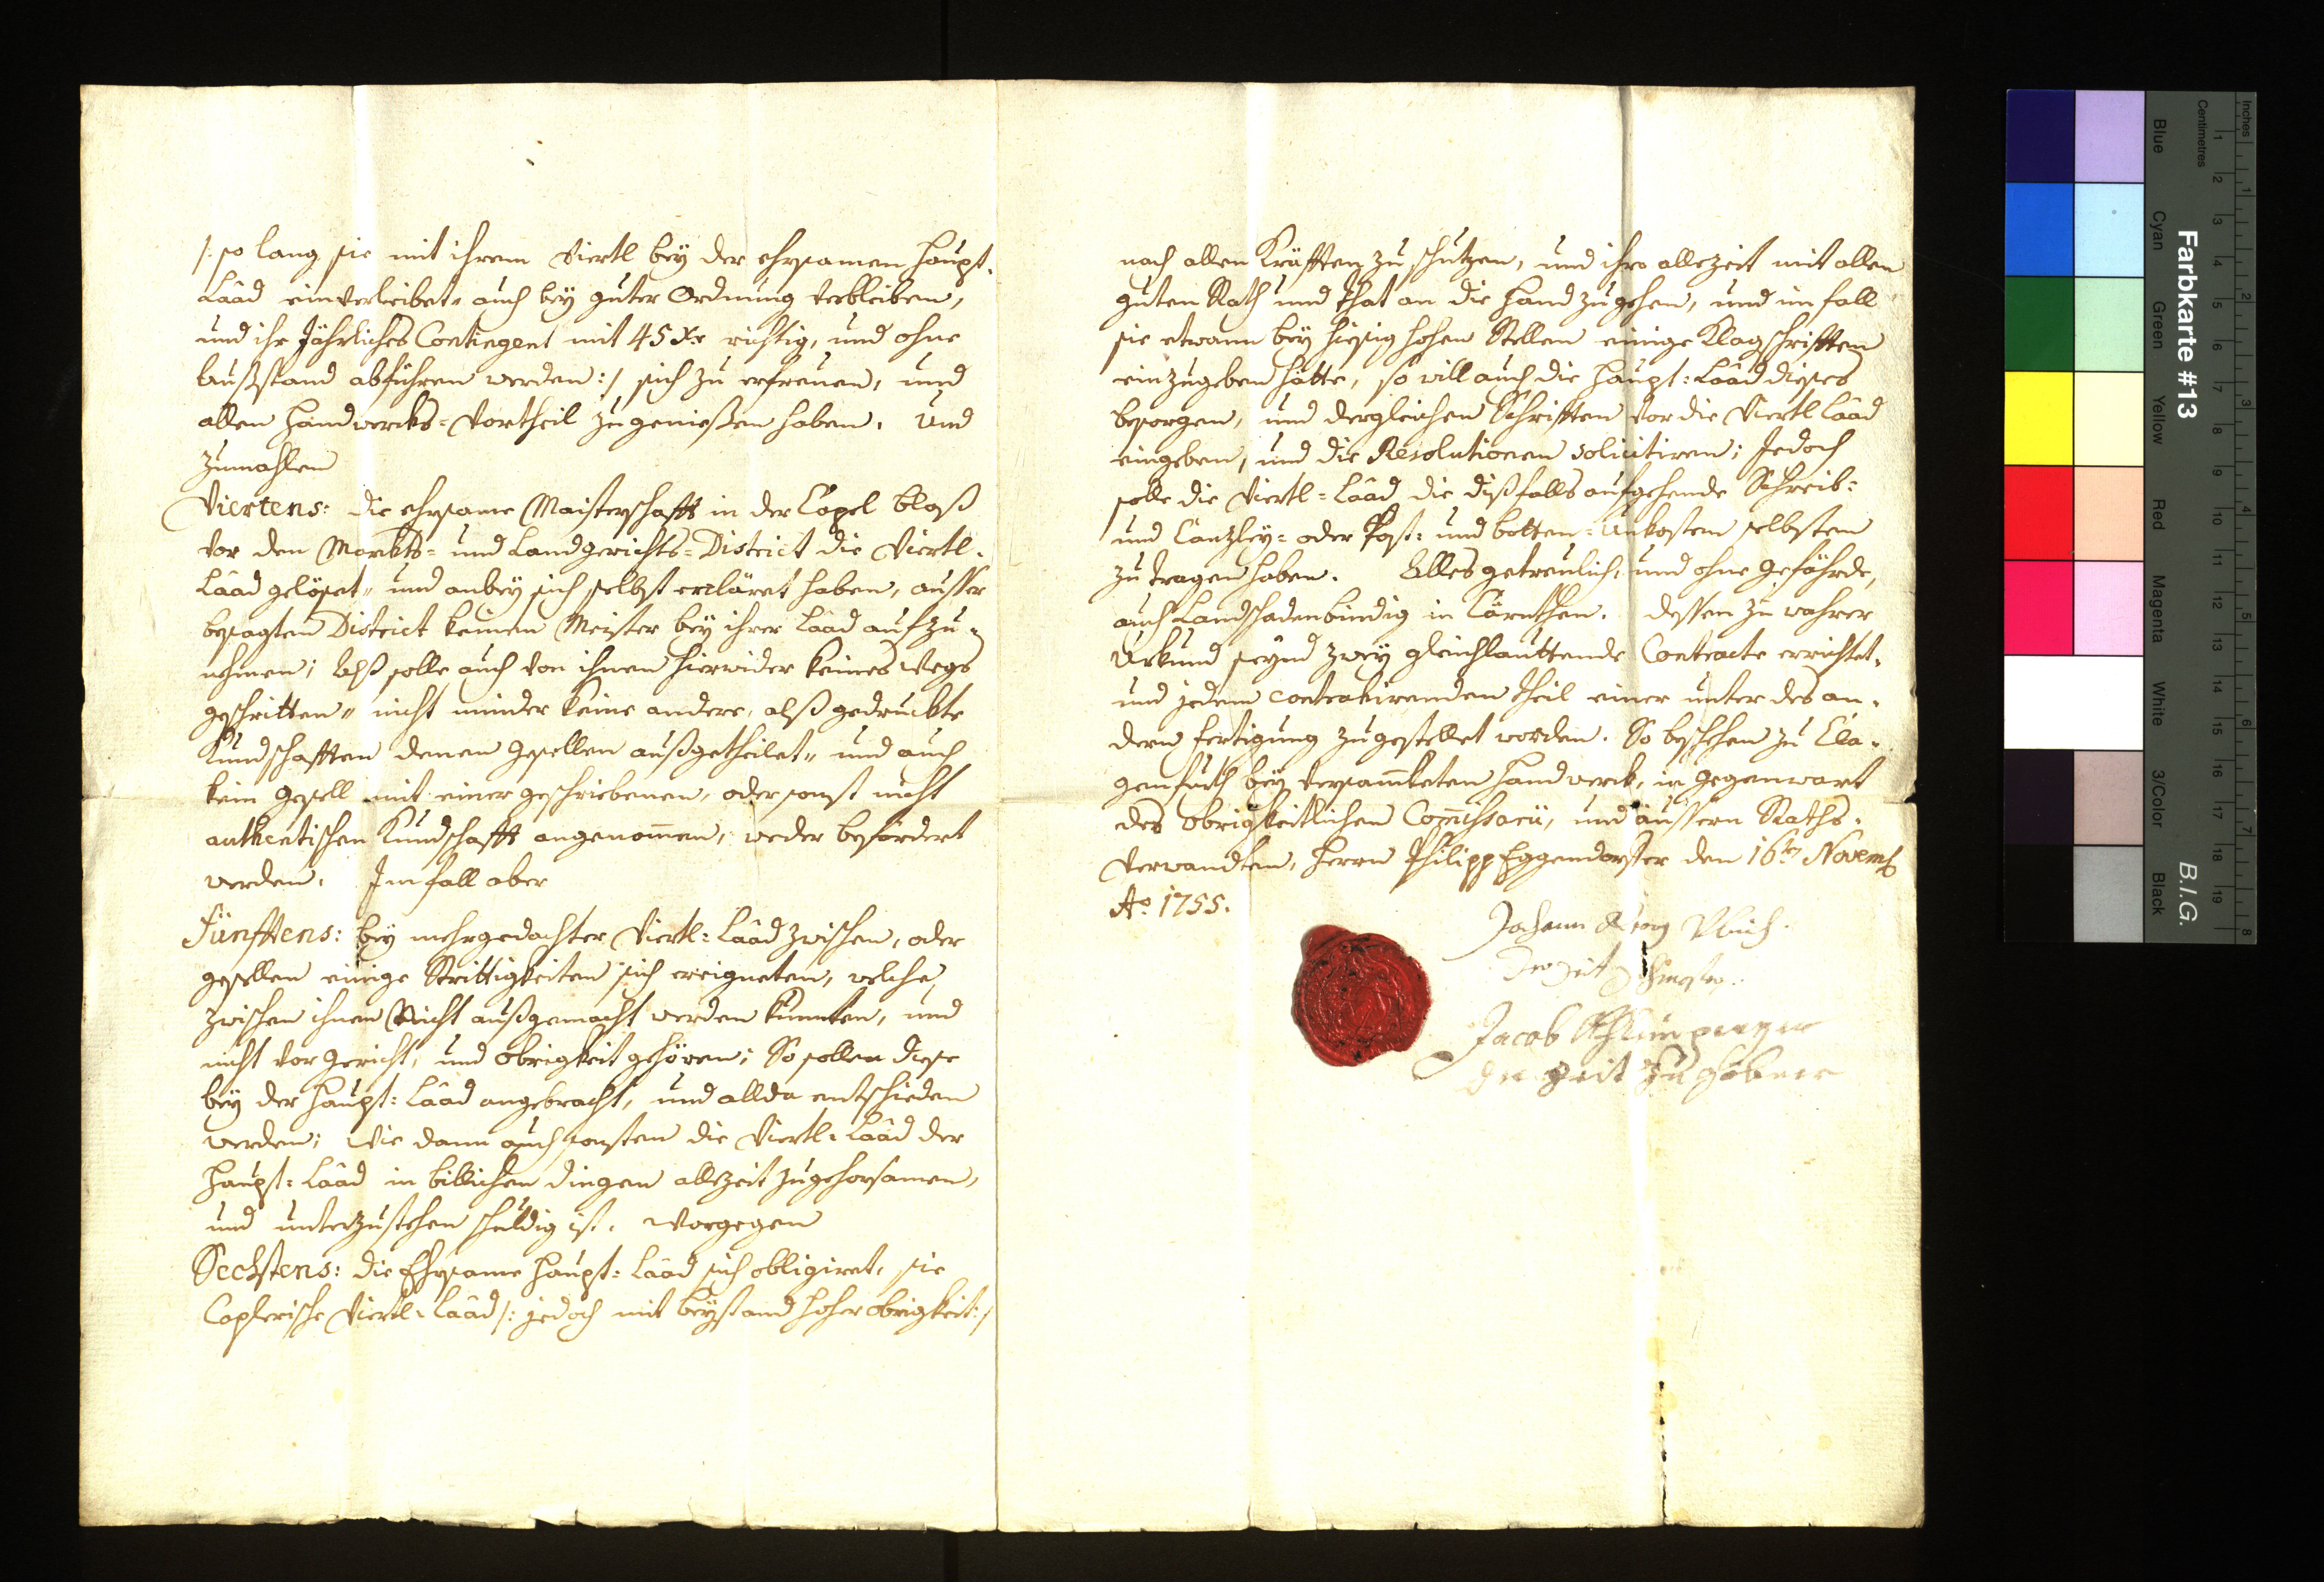 /: so lang sie mit ihrem Viertl bey der ehrsamen Haupt-
Lâad einverleibet- auch bey guter Ordnung verbleiben,
und ihr Jährliches Contingent mit 45 xr richtig, und ohne
Außstand abführen werden :/ sich zu erfreuen, und
allen Handwercks-Vortheil zu genießen haben. Und
zumahlen
Viertens: die ehrsame Maisterschafft in der Capel bloß
vor den Markts- und Landgerichts-District die Viertl-
Lâad gelöset- und anbey sich selbst erkläret haben, ausser
besagten District keinen Meister bey ihrer Lâad aufzu-
nehmen; Alß solle auch von ihnen hierwider keines Wegs
geschritten- nicht minder keine andere, alß gedruckte
Kundschafften denen Gesellen außgetheilet- und auch
kein Gesell mit einer geschriebenen, oder sonst nicht
authentischen Kundschafft angenom̄en, weder befördert
werden. Im fall aber
Fünfftens: bey mehrgedachter Viertl-Lâad zwischen, oder
gesellen einige Strittigkeiten sich ereigneten, welche
zwischen ihnen Nicht außgemacht werden kunnten, und
nicht vor Gericht, und Obrigkeit gehören; So sollen diese
bey der Haupt-Lâad angebracht, und allda entschieden
werden; Wie dann auch sonsten die Viertl-Lâad der
Haupt-Lâad in billichen dingen allezeit zu gehorsamen,
und unterzustehen schuldig ist. Worgegen
Sechstens: die Ehrsame Haupt-Lâad sich obligiret, sie
Caplerische Viertl-Lâad /: jedoch mit beystand hoher obrigkeit :/
nach allen Kräfften zu schutzen, und ihro allezeit mit allen
guten Rath und That an die Hand zu gehen, und im fall
sie etwann bey hiesig hohen Stellen einige Klagschrifften
einzugeben hätte, so will auch die Haupt-Lâad dieses
besorgen, und dergleichen Schrifften vor die Viertl Lâad
eingeben, und die Resolutionen solicitiren; Jedoch
solle die Viertl-Lâad die dißfalls aufgehende Schreib-
und Canzley- oder Post- und botten-Unkosten selbsten
zu tragen haben. Alles getreulich, und ohne Gefährde,
auch Landschadenbündig in Cärnthen. Dessen zu wahrer
Urkund seynd zwey gleichlauttende Contracte errichtet,
und jedem contrahirenden theil einer unter des an-
dern fertigung zugestellet worden. So beschehen zu Cla-
genfurth bey versam̄leten Handwerck, in Gegenwart
des obrigkeitlichen Com̄issarii, und äussern Raths-
Verwandten, Herrn Philipp Eggendorffer den 16ten Novemb
Ao. 1755.
Johann Georg
Jacob
der zeit
Farbkarte #13
B.I.G.
Inches
Centimetres
Blue
Cyan
Green
Yellow
Red
Magenta
White
3/Color
Black
1 2 3 4 5 6 7 8 9 10 11 12 13 14 15 16 17 18 19
1 2 3 4 5 6 7 8